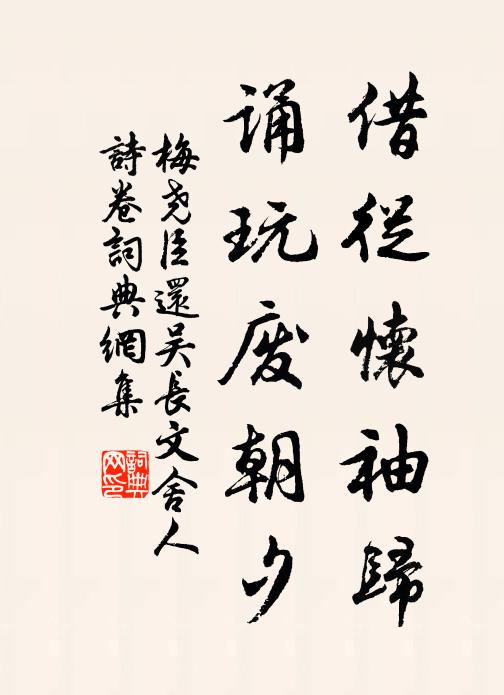 借從懷袖歸
誦玩废朝夕
梅尧臣還吴長文舍人
詩卷詞典網集
詞典
网印